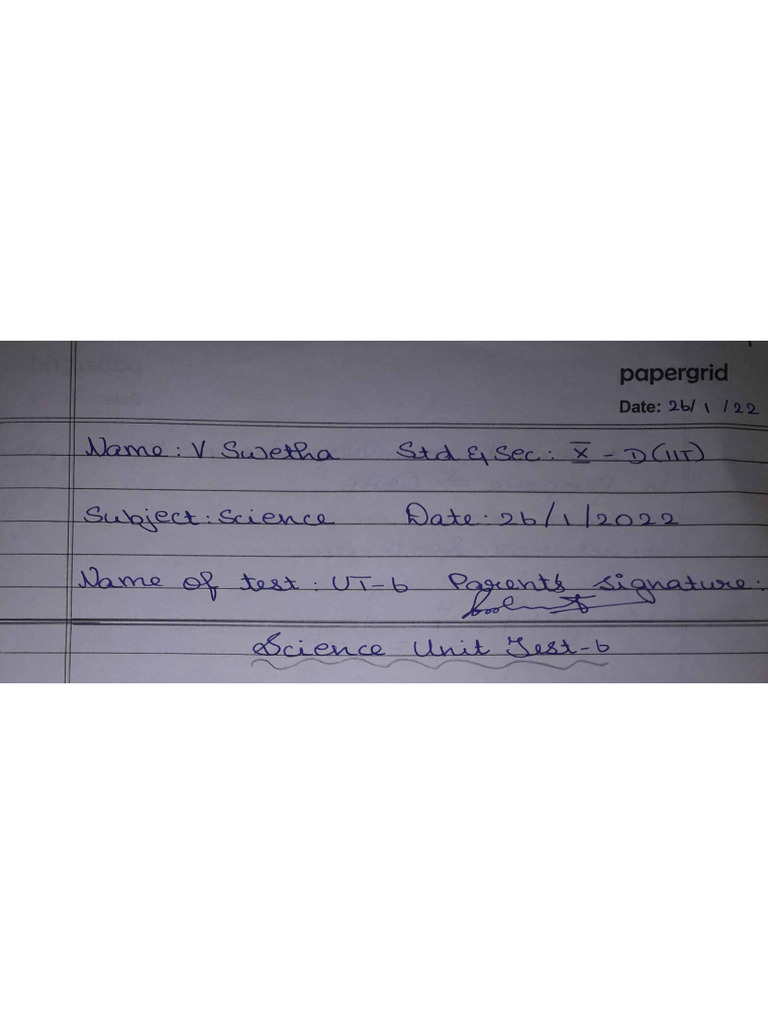 papergrid
Date: 26/1/22
Name: V. Swetha Std & Sec: X - D(IIT)
Subject: Science Date: 26/1/2022
Name of test: UT-6 Parent's signature:
Science Unit Test-6